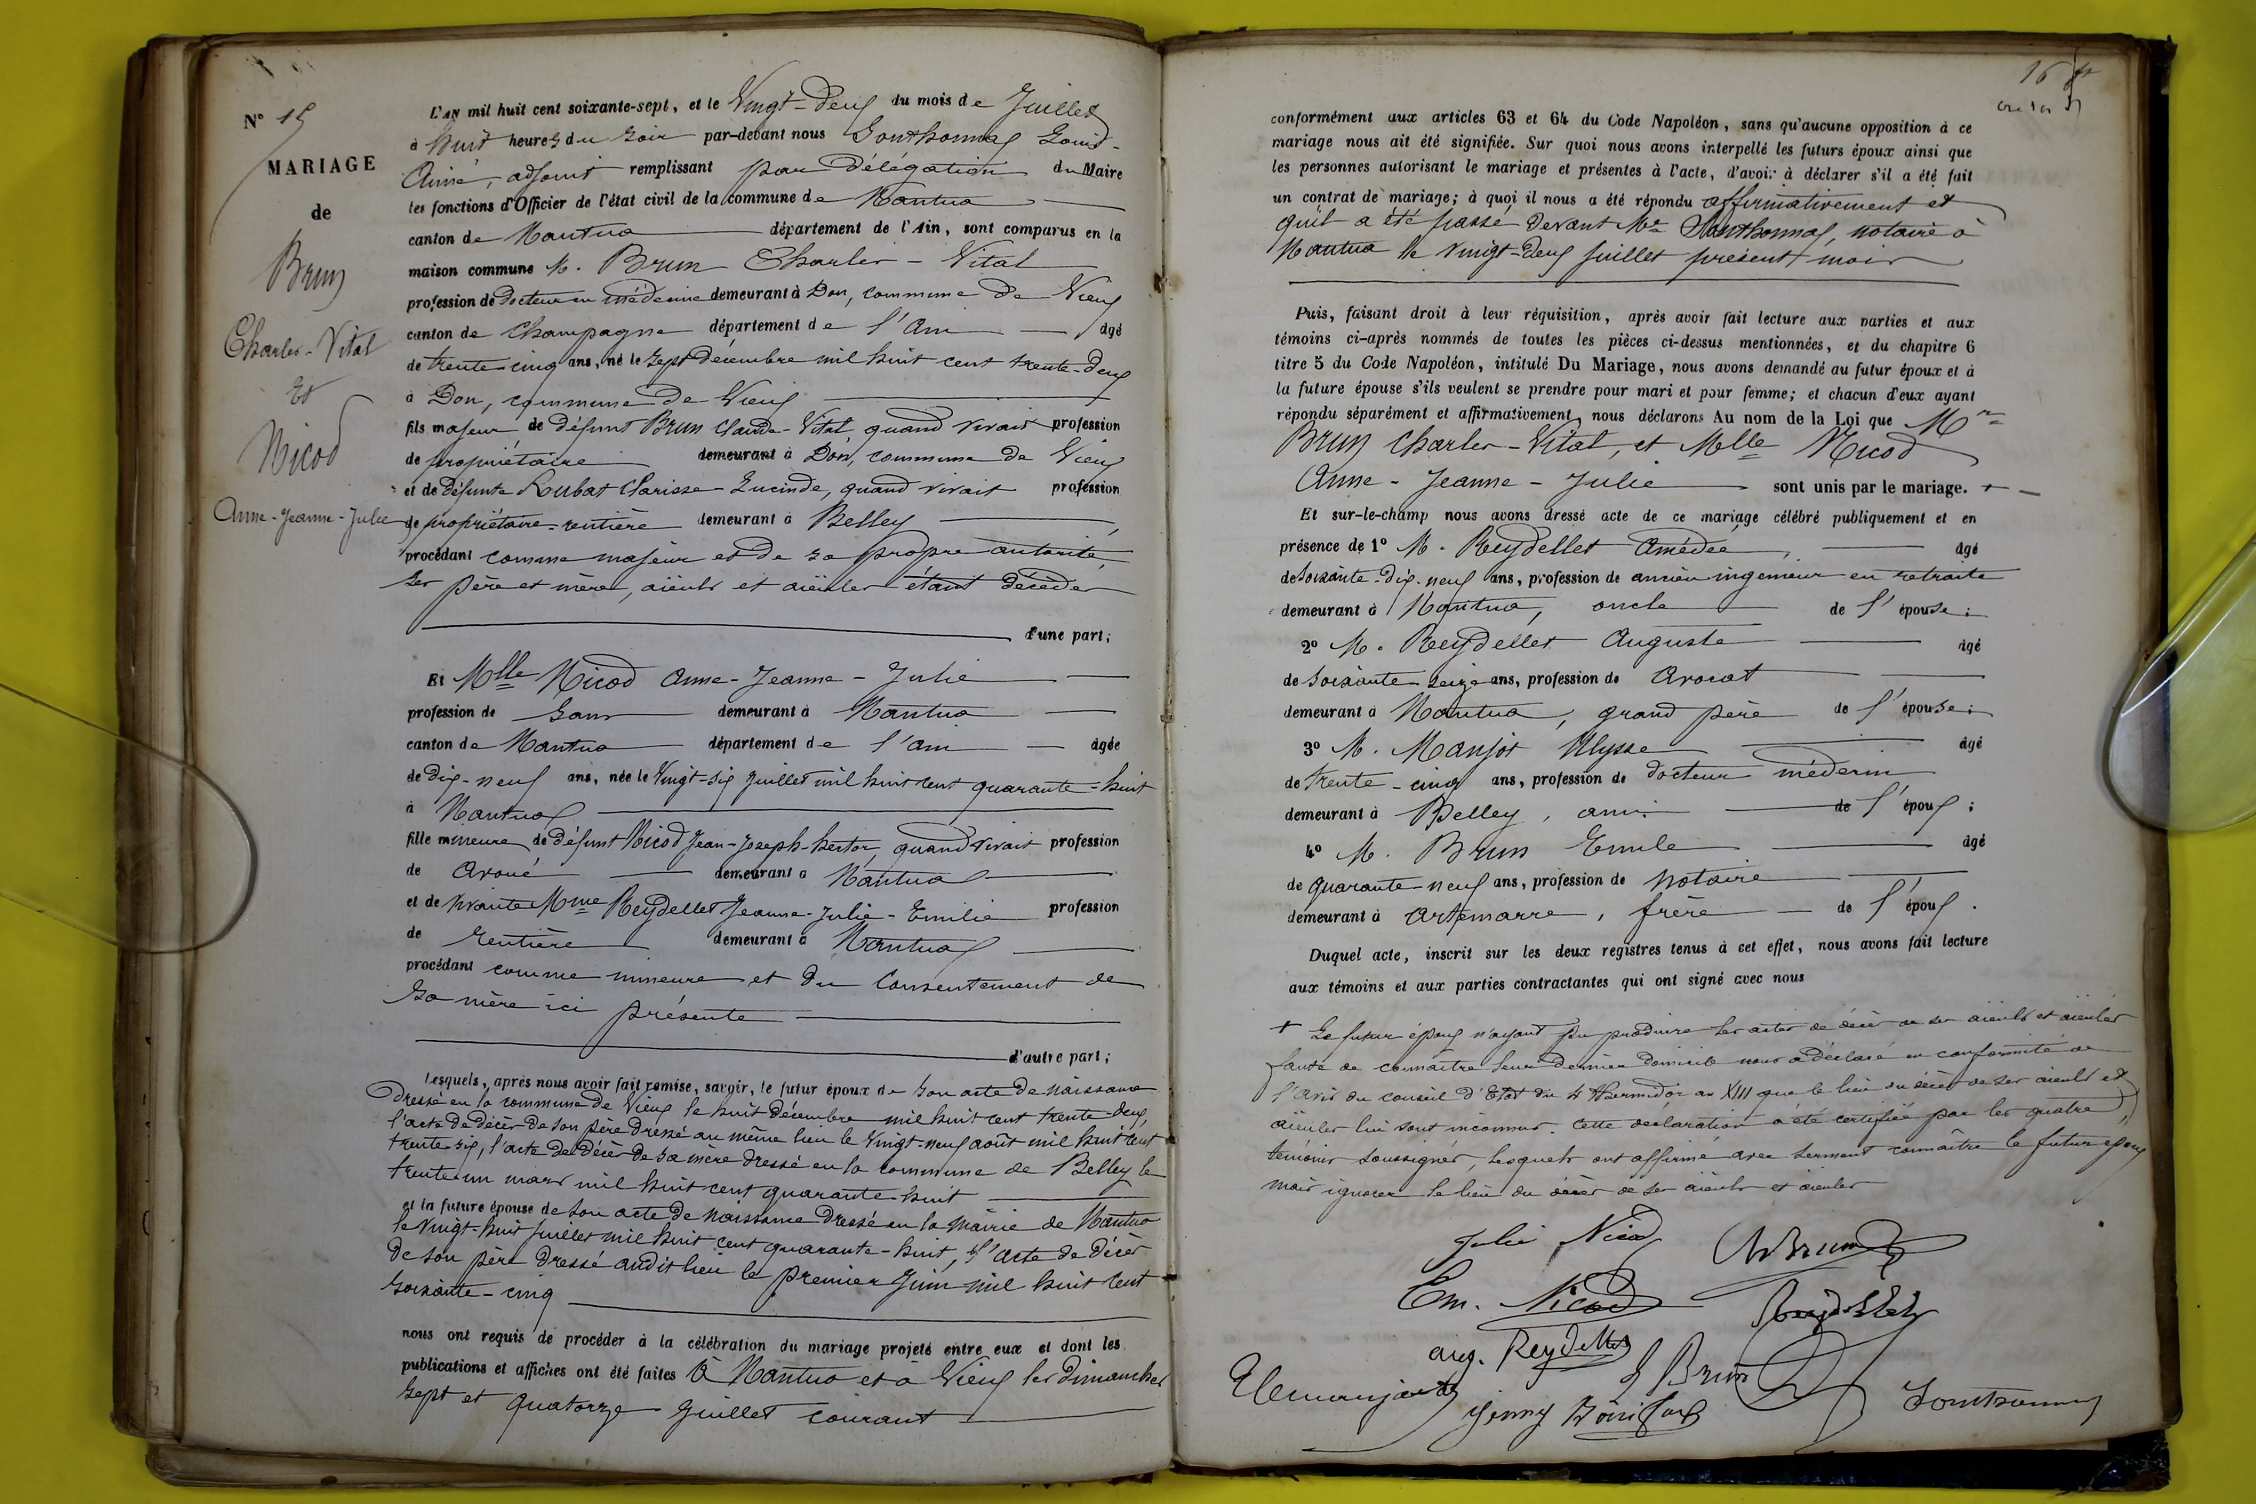 N° 15
MARIAGE
de
Brun
Charles-Vital
Et
Nicod
Anne-Jeanne-Julie
L'AN mil huit cent soixante-sept, et le Vingt-deux du mois de Juillet
à huit heures du soir par-devant nous Sonthonnax Louis-
Aimé, adjoint remplissant par délégation du Maire
les fonctions d'Officier de l'état civil de la commune de Nantua
canton de Nantua département de l'Ain, sont comparus en la
maison commune M. Brun Charles-Vital
profession de docteur en médecine demeurant à Don, commune de Vieux
canton de Champagne département de l'Ain âgé
de trente-cinq ans, né le sept décembre mil huit cent trente-deux
à Don, commune de Vieux
fils majeur de défunt Brun Claude-Vital, quand vivait profession
de propriétaire demeurant à Don, commune de Vieux
et de défunte Rubat Clarisse-Lucinde, quand vivait profession
de propriétaire-rentière demeurant à Belley
procédant comme majeur et de sa propre autorité,
ses père et mère, aïeuls et aïeules étant décédés
d'une part;
Et Mlle Nicod Anne-Jeanne-Julie
profession de sans demeurant à Nantua
canton de Nantua département de l'Ain âgée
de dix-neuf ans, née le Vingt-six juillet mil huit cent quarante-huit
à Nantua
fille mineure de défunt Nicod Jean-Joseph-hector, quand vivait profession
de avoué demeurant à Nantua
et de vivante Mme Reydellet Jeanne-Julie-Emilie profession
de rentière demeurant à Nantua
procédant comme mineure et du consentement de
sa mère ici présente
d'autre part;
Lesquels, après nous avoir fait remise, savoir, le futur époux de son acte de naissance
dressé en la commune de Vieux le huit décembre mil huit cent trente-deux,
l'acte de décès de son père dressé au même lieu le vingt-neuf août mil huit cent
trente-six, l'acte de décès de sa mère dressé en la commune de Belley le
trente-un mars mil huit cent quarante-huit
et la future épouse de son acte de naissance dressé en la mairie de Nantua
le vingt-huit juillet mil huit cent quarante-huit, et l'acte de décès
de son père dressé audit lieu le premier juin mil huit cent
soixante-cinq
nous ont requis de procéder à la célébration du mariage projeté entre eux et dont les
publications et affiches ont été faites à Nantua et à Vieux les dimanches
sept et quatorze juillet courant
16
conformément aux articles 63 et 64 du Code Napoléon, sans qu'aucune opposition à ce
mariage nous ait été signifiée. Sur quoi nous avons interpellé les futurs époux ainsi que
les personnes autorisant le mariage et présentes à l'acte, d'avoir à déclarer s'il a été fait
un contrat de mariage; à quoi il nous a été répondu affirmativement et
qu'il a été passé devant Me Sonthonnax, notaire à
Nantua le vingt-deux juillet présent mois
Puis, faisant droit à leur réquisition, après avoir fait lecture aux parties et aux
témoins ci-après nommés de toutes les pièces ci-dessus mentionnées, et du chapitre 6
titre 5 du Code Napoléon, intitulé Du Mariage, nous avons demandé au futur époux et à
la future épouse s'ils veulent se prendre pour mari et pour femme; et chacun d'eux ayant
répondu séparément et affirmativement, nous déclarons Au nom de la Loi que Mr
Brun Charles-Vital, et Mlle Nicod
Anne-Jeanne-Julie sont unis par le mariage. +
Et sur-le-champ nous avons dressé acte de ce mariage célébré publiquement et en
présence de 1° M. Reydellet Amédée, âgé
de soixante-dix-neuf ans, profession de ancien ingénieur en retraite
demeurant à Nantua, oncle de l'épouse;
2° M. Reydellet Auguste âgé
de soixante-seize ans, profession de Avocat
demeurant à Nantua, grand père de l'épouse;
3° M. Manjot Ulysse âgé
de trente-cinq ans, profession de docteur médecin
demeurant à Belley, ami de l'époux;
4° M. Brun Emile âgé
de quarante-neuf ans, profession de Notaire
demeurant à Artemarre, frère de l'époux.
Duquel acte, inscrit sur les deux registres tenus à cet effet, nous avons fait lecture
aux témoins et aux parties contractantes qui ont signé avec nous
+ Le futur époux n'ayant pu produire les actes de décès de ses aïeuls et aïeules
faute de connaître leur dernier domicile nous a déclaré en conformité de
l'avis du conseil d'Etat du 4 thermidor an XIII que le lieu du décès de ses aïeuls et
aïeules lui sont inconnus. Cette déclaration a été certifiée par les quatre
témoins soussignés, lesquels ont affirmé avec serment connaître le futur époux
mais ignorer le lieu du décès de ses aïeuls et aïeules
Julie Nicod
Ch Brun
Em. Nicod
Reydellet
aug. Reydellet
E Brun
Ulemanjot
Jenny Bonifax
Sonthonnax